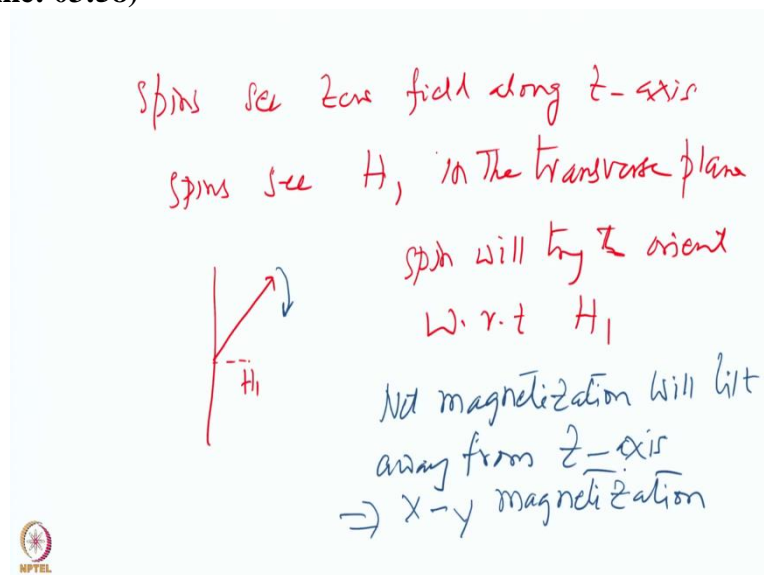 Spins see zero field along z-axis
Spins see H1 in The transverse plane
spin will try to orient
w.r.t H1
H1
Net magnetization will tilt
away from z-axis
⇒ X-y magnetization
NPTEL